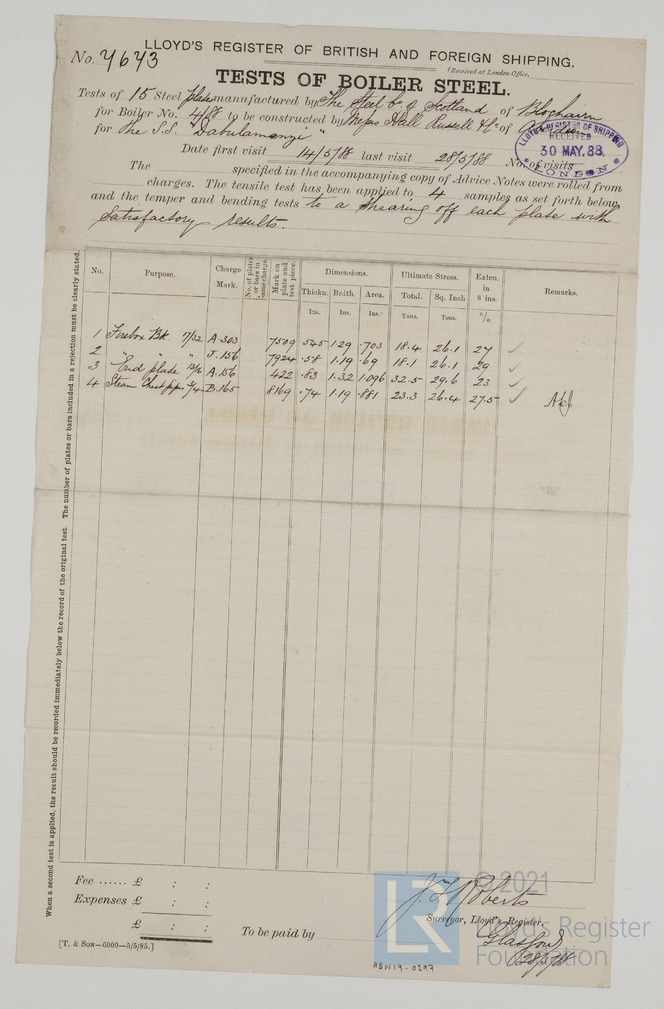 LLOYD'S REGISTER OF BRITISH AND FOREIGN SHIPPING.
No. 4643
(Received at London Office,
TESTS OF BOILER STEEL.
Tests of 15 Steel plates manufactured by The Steel Co. of Scotland of Blochairn
for Boiler No. 4/88 to be constructed by Messrs Hall Russell & Co of
for the S.S. "Dabulamanzi"
LLOYD'S REGISTER OF SHIPPING
RECEIVED
30 MAY. 88.
LONDON
Date first visit 14/5/88 last visit 28/5/88 No. of visits
The specified in the accompanying copy of Advice Notes were rolled from
charges. The tensile test has been applied to 4 samples as set forth below,
and the temper and bending tests to a shearing off each plate with
satisfactory results.
When a second test is applied, the result should be recorded immediately below the record of the original test. The number of plates or bars included in a rejection must be clearly stated.
No. Purpose. Charge Mark. No. of plates or bars in same charge. Mark on plate and test piece. Dimensions. Ultimate Stress. Exten. in 8 ins. Remarks.
Thickn. Brdth. Area. Total. Sq. Inch
Ins. Ins. Ins.² Tons. Tons. %.
1 Firebox Bk. 17/32 A.303 7509 .545 1.29 .703 18.4 26.1 27 ✓
2 " " " J.156 7924 .58 1.19 .69 18.1 26.1 29 ✓
3 End plate 13/16 A.156 422 .83 1.32 1.096 32.5 29.6 23 ✓
4 Steam Chest pipe 3/4 B.165 8169 .74 1.19 .881 23.3 26.4 27.5 ✓
Fee ...... £ : :
Expenses £ : :
£ : :
To be paid by
J. Roberts
Surveyor, Lloyd's Register.
Glasgow
28/5/88
[T. & SON—6000—5/5/85.]
ABN19-0297
LR
© 2021
Lloyd's Register
Foundation